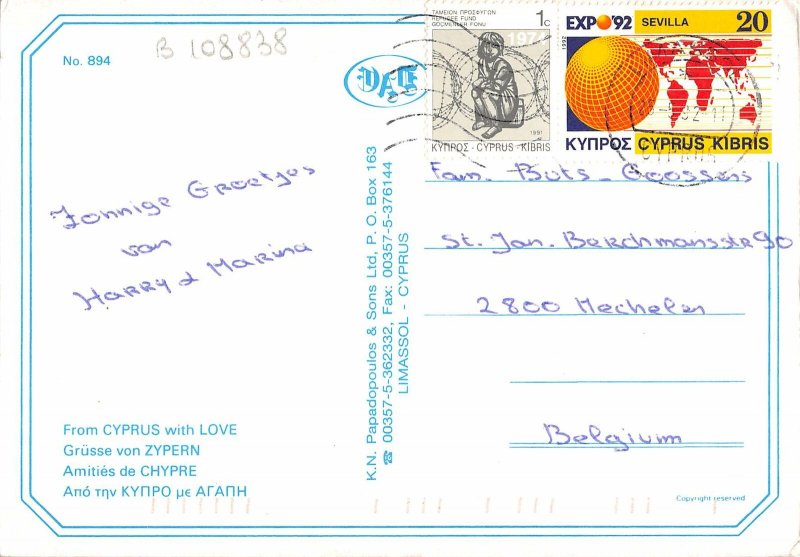 B 108838
No. 894
ΤΑΜΕΙΟΝ ΠΡΟΣΦΥΓΩΝ
REFUGEE FUND
GÖÇMENLER FONU
1c
1974
1991
ΚΥΠΡΟΣ · CYPRUS · KIBRIS
EXPO'92 SEVILLA 20
1992
ΚΥΠΡΟΣ CYPRUS KIBRIS
Zonnige Groetjes
van
Harry & Marina
Fam. Buts - Goossens
St. Jan. Berchmansstr 90
2800 Mechelen
Belgium
K.N. Papadopoulos & Sons Ltd, P. O. Box 163
☎ 00357-5-362332, Fax: 00357-5-376144
LIMASSOL - CYPRUS
From CYPRUS with LOVE
Grüsse von ZYPERN
Amitiés de CHYPRE
Από την ΚΥΠΡΟ με ΑΓΑΠΗ
Copyright reserved